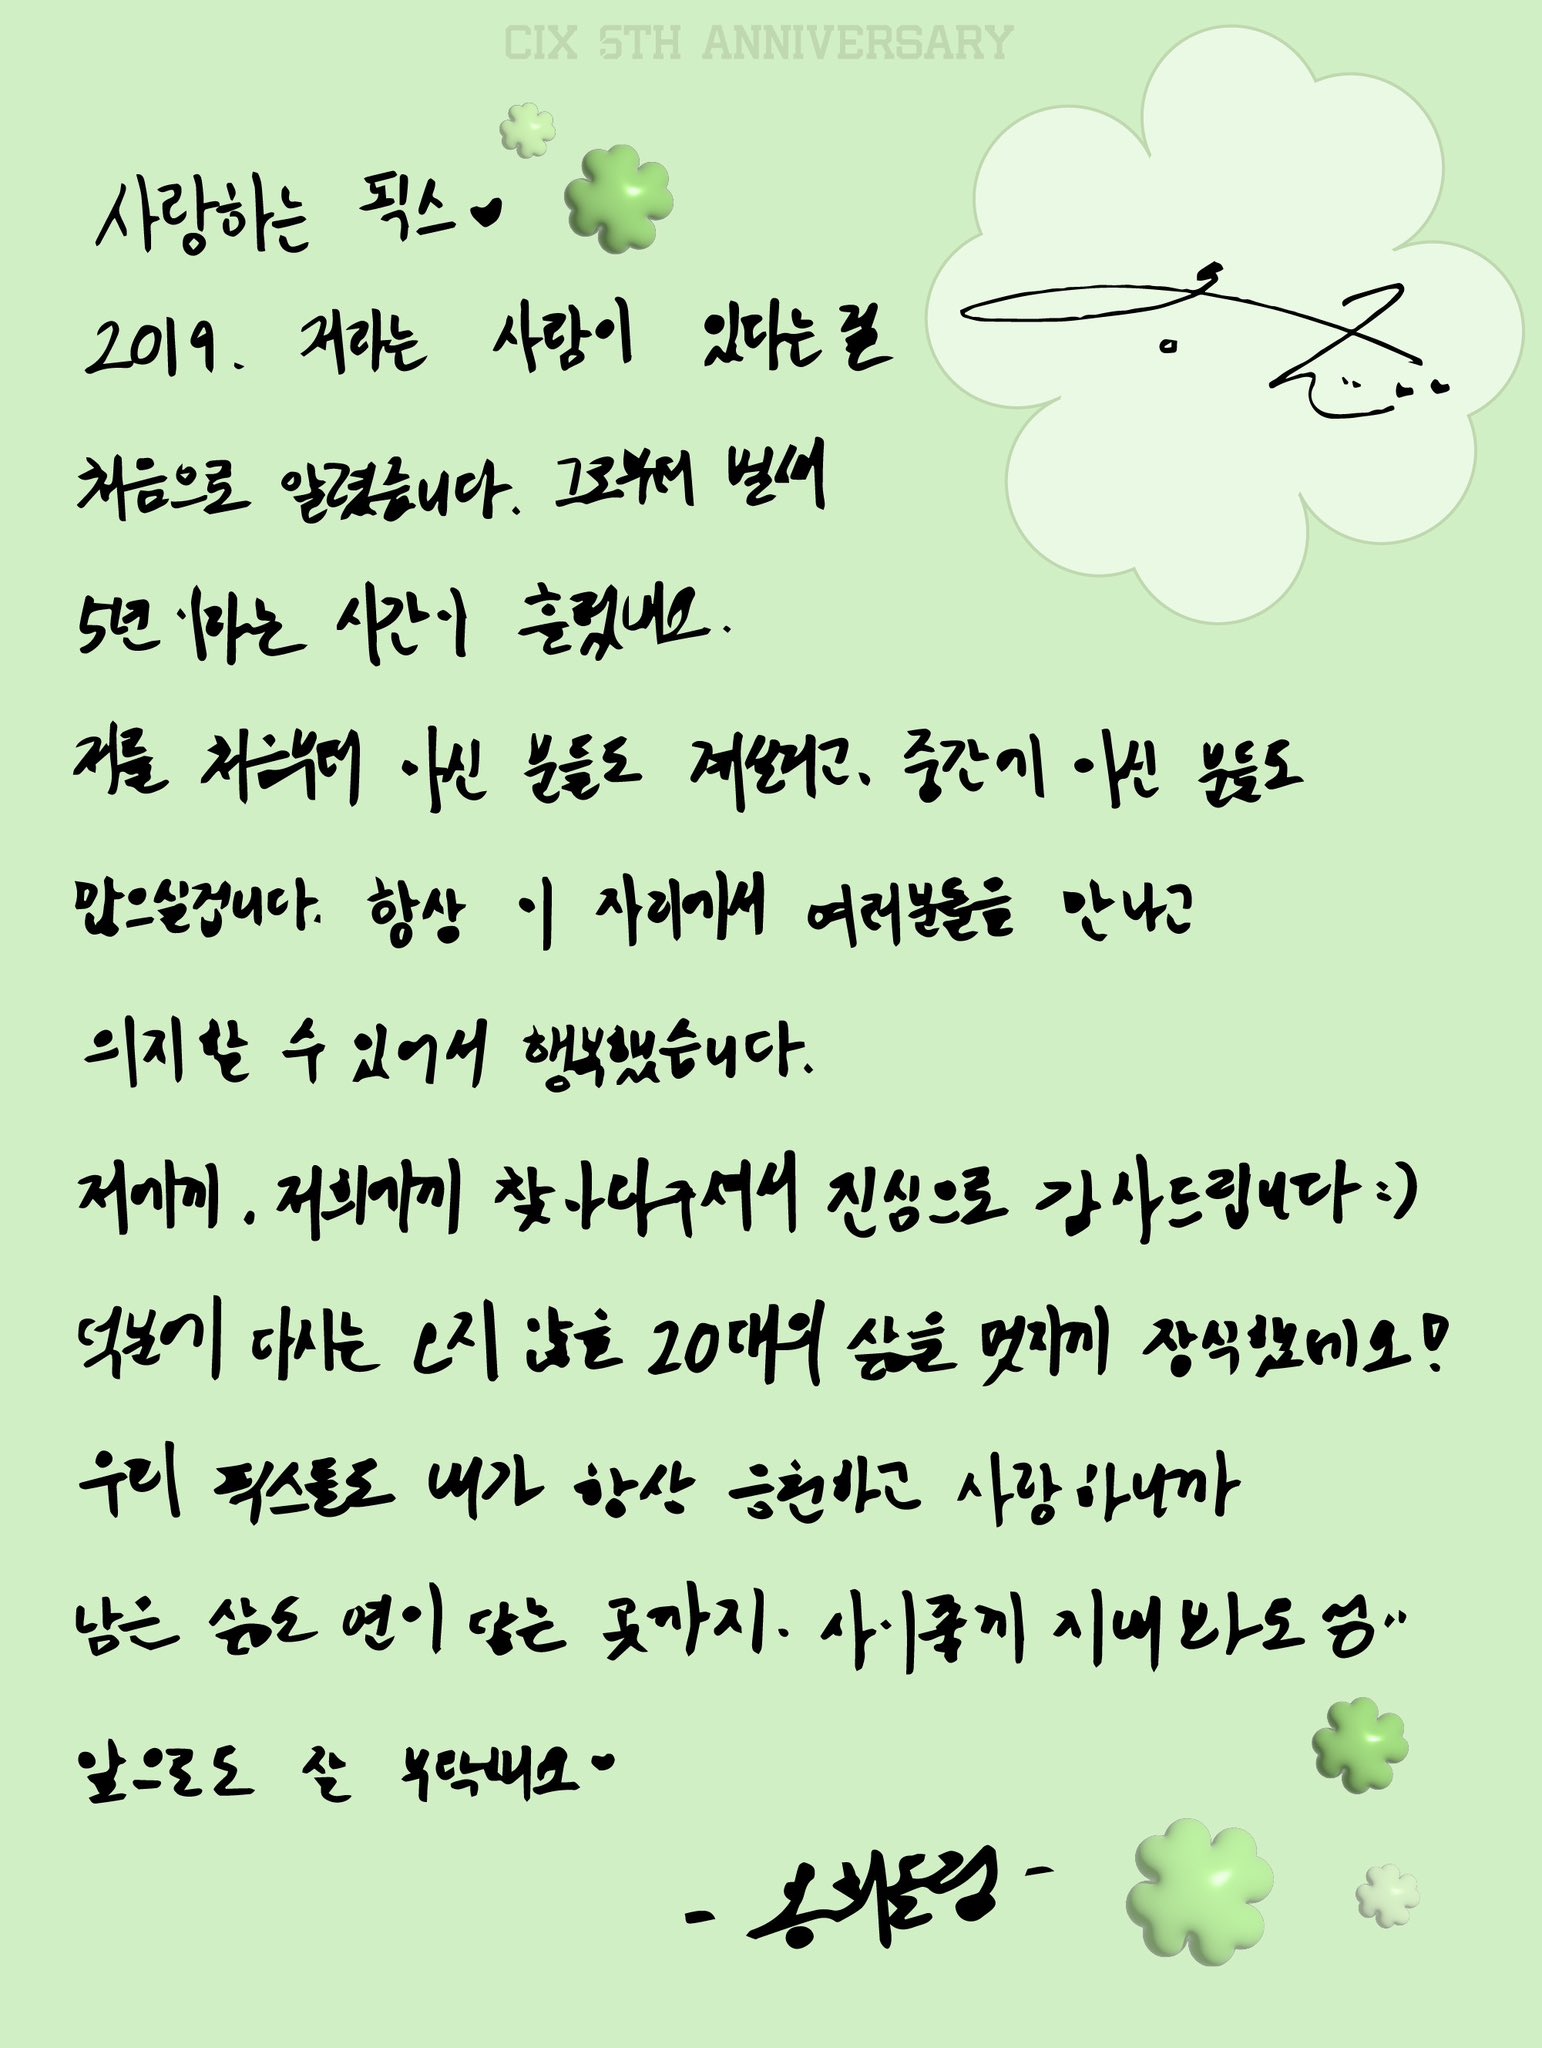 CIX 5TH ANNIVERSARY
사랑하는 픽스♥
2019. 저라는 사람이 있다는걸
처음으로 알렸습니다. 그로부터 벌써
5년이라는 시간이 흘렀네요.
저를 처음부터 아신 분들도 계실테고, 중간에 아신 분들도
많으실겁니다. 항상 이 자리에서 여러분들을 만나고
의지할 수 있어서 행복했습니다.
저에게, 저희에게 찾아와주셔서 진심으로 감사드립니다:)
덕분에 다시는 오지 않을 20대의 삶을 멋지게 장식했네요!
우리 픽스들도 내가 항상 응원하고 사랑하니까
남은 삶도 연이 닿는 곳까지. 사이좋게 지내봐도
앞으로도 잘 부탁해요♥
- 용희드림 -